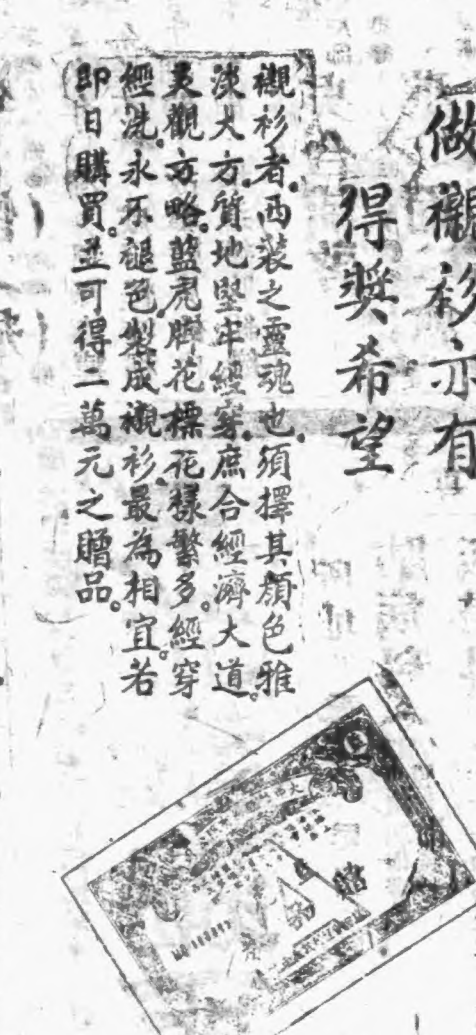 做襯衫亦有
得奬希望
襯衫者。西裝之靈魂也。須擇其顏色雅
淡大方。質地堅牢經穿。庶合經濟大道。
美觀方略。藍虎牌花標。花樣繁多。經穿
經洗。永不褪色。製成襯衫。最為相宜。若
即日購買。並可得二萬元之贈品。